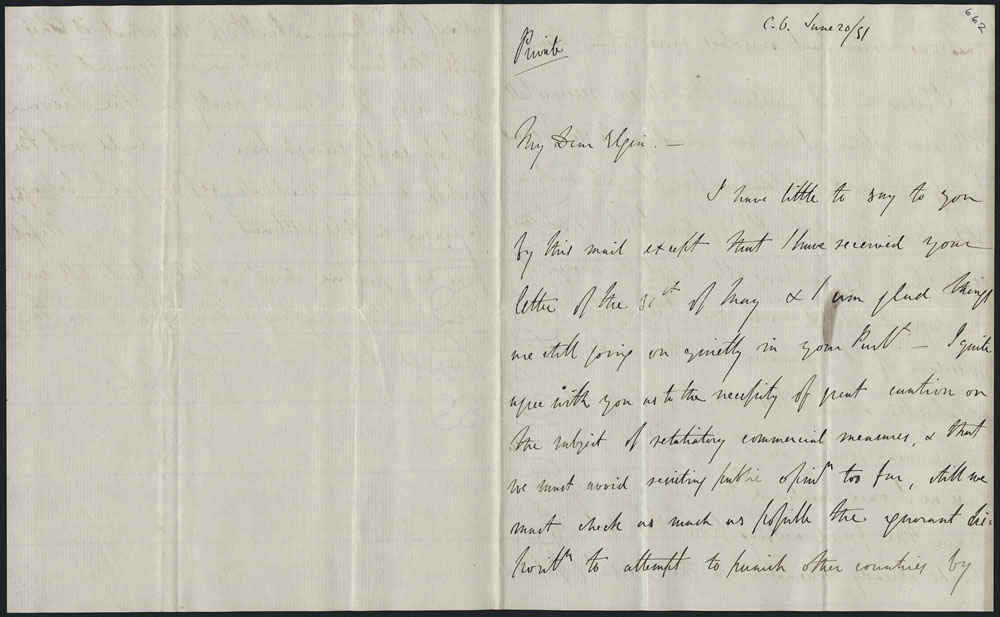 662
C.O. June 20/51
Private
My Dear Elgin. —
I have little to say to you
by this mail except that I have received your
letter of the 31st of May & I am glad things
are still going on quietly in your Parlt. — I quite
agree with you as to the necessity of great caution on
the subject of retaliatory commercial measures, & that
we must avoid resisting public opinn too far, still we
must check as much as possible the ignorant dis-
positn to attempt to punish other countries by